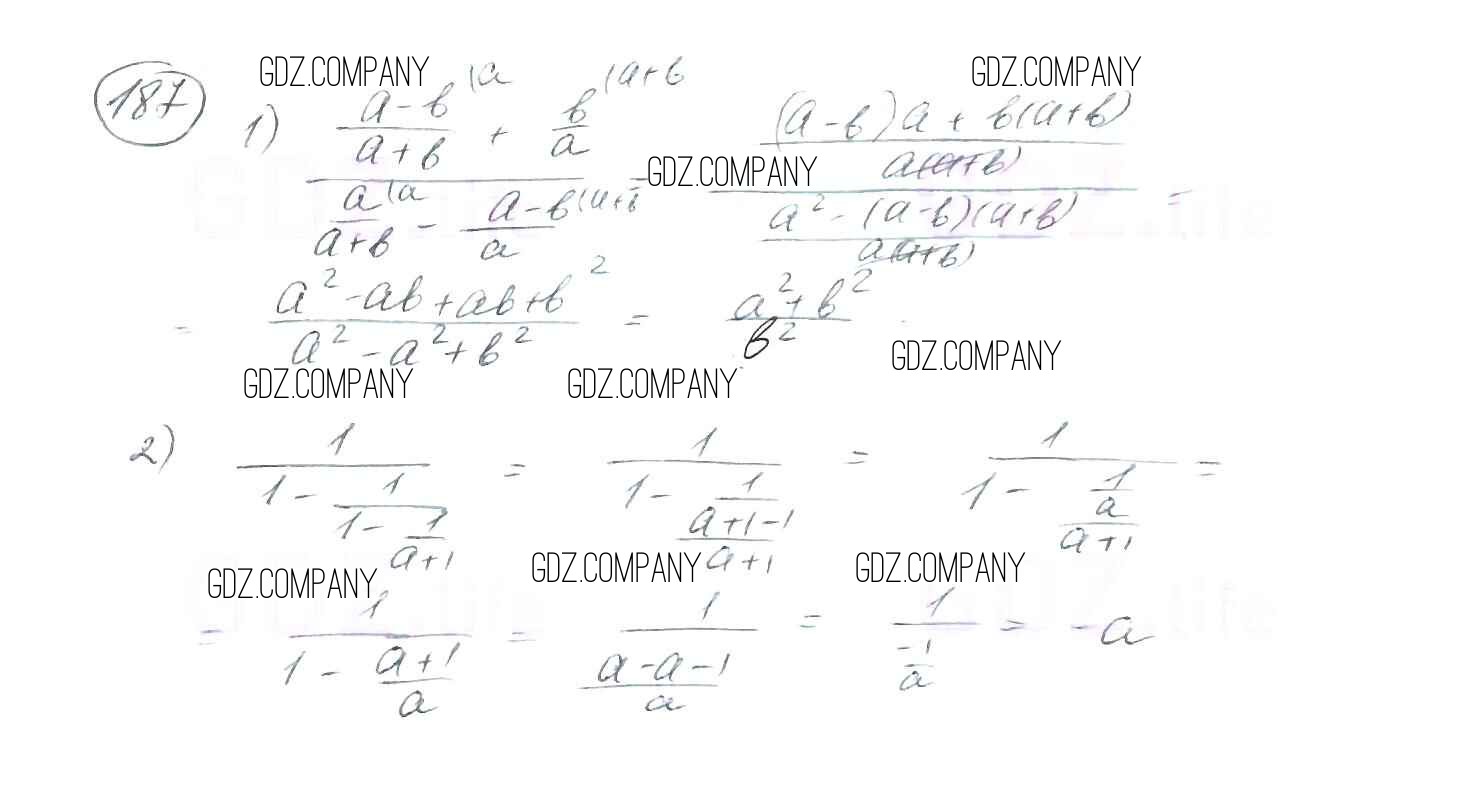 187
GDZ.COMPANY GDZ.COMPANY
1) ((a-b)/(a+b) (a + b/a (a+b) / (a/(a+b) (a - (a-b)/a (a+b) = ((a-b)a + b(a+b))/(a(a+b)) / (a² - (a-b)(a+b))/(a(a+b)) =
GDZ.COMPANY
= (a² - ab + ab + b²)/(a² - a² + b²) = (a² + b²)/b²
GDZ.COMPANY GDZ.COMPANY GDZ.COMPANY
2) 1/(1 - 1/(1 - 1/(a+1))) = 1/(1 - 1/((a+1-1)/(a+1))) = 1/(1 - 1/(a/(a+1))) =
GDZ.COMPANY GDZ.COMPANY GDZ.COMPANY
= 1/(1 - (a+1)/a) = 1/((a-a-1)/a) = 1/(-1/a) = -a